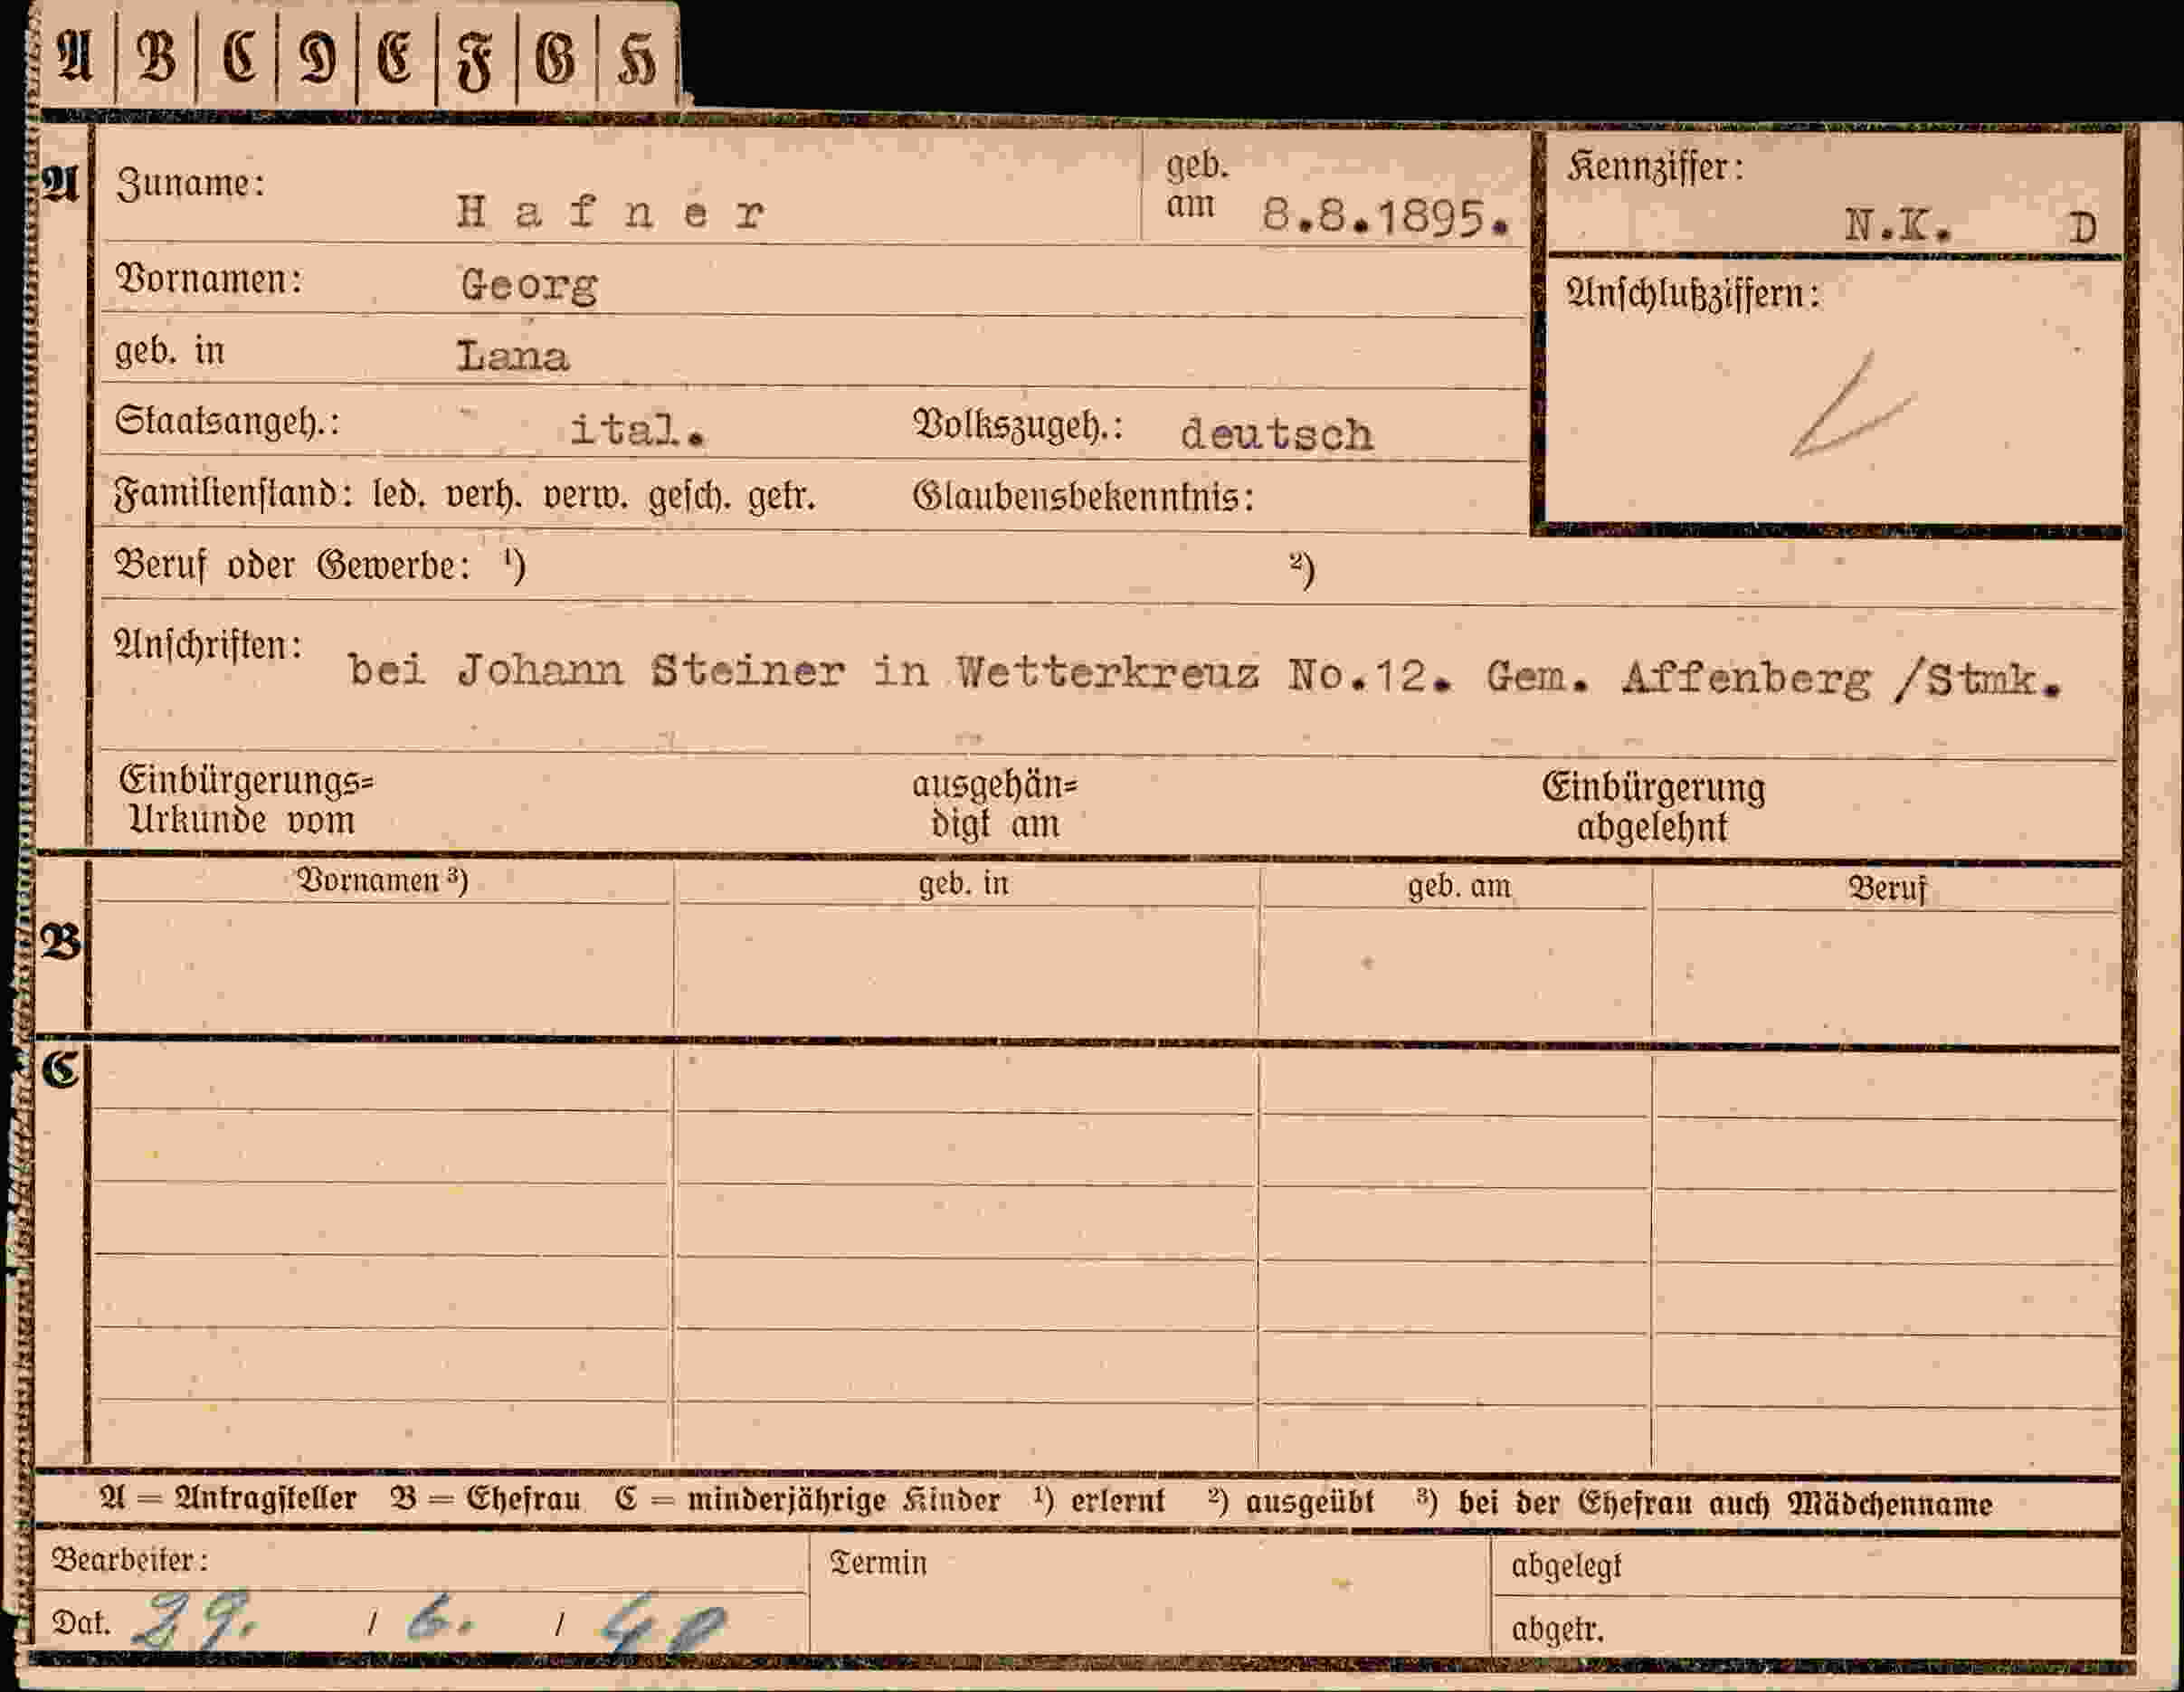 A B C D E F G H
A Zuname: Hafner geb. am 8.8.1895.
Kennziffer: N.K. D
Vornamen: Georg
Anschlußziffern:
geb. in Lana
Staatsangeh.: ital. Volkszugeh.: deutsch
Familienstand: led. verh. verw. gesch. getr. Glaubensbekenntnis:
Beruf oder Gewerbe: ¹) ²)
Anschriften: bei Johann Steiner in Wetterkreuz No.12. Gem. Affenberg /Stmk.
Einbürgerungs= ausgehän= Einbürgerung
Urkunde vom digt am abgelehnt
Vornamen ³) geb. in geb. am Beruf
B
C
A = Antragsteller B = Ehefrau C = minderjährige Kinder ¹) erlernt ²) ausgeübt ³) bei der Ehefrau auch Mädchenname
Bearbeiter: Termin abgelegt
Dat. 29. / 6. / 40 abgetr.